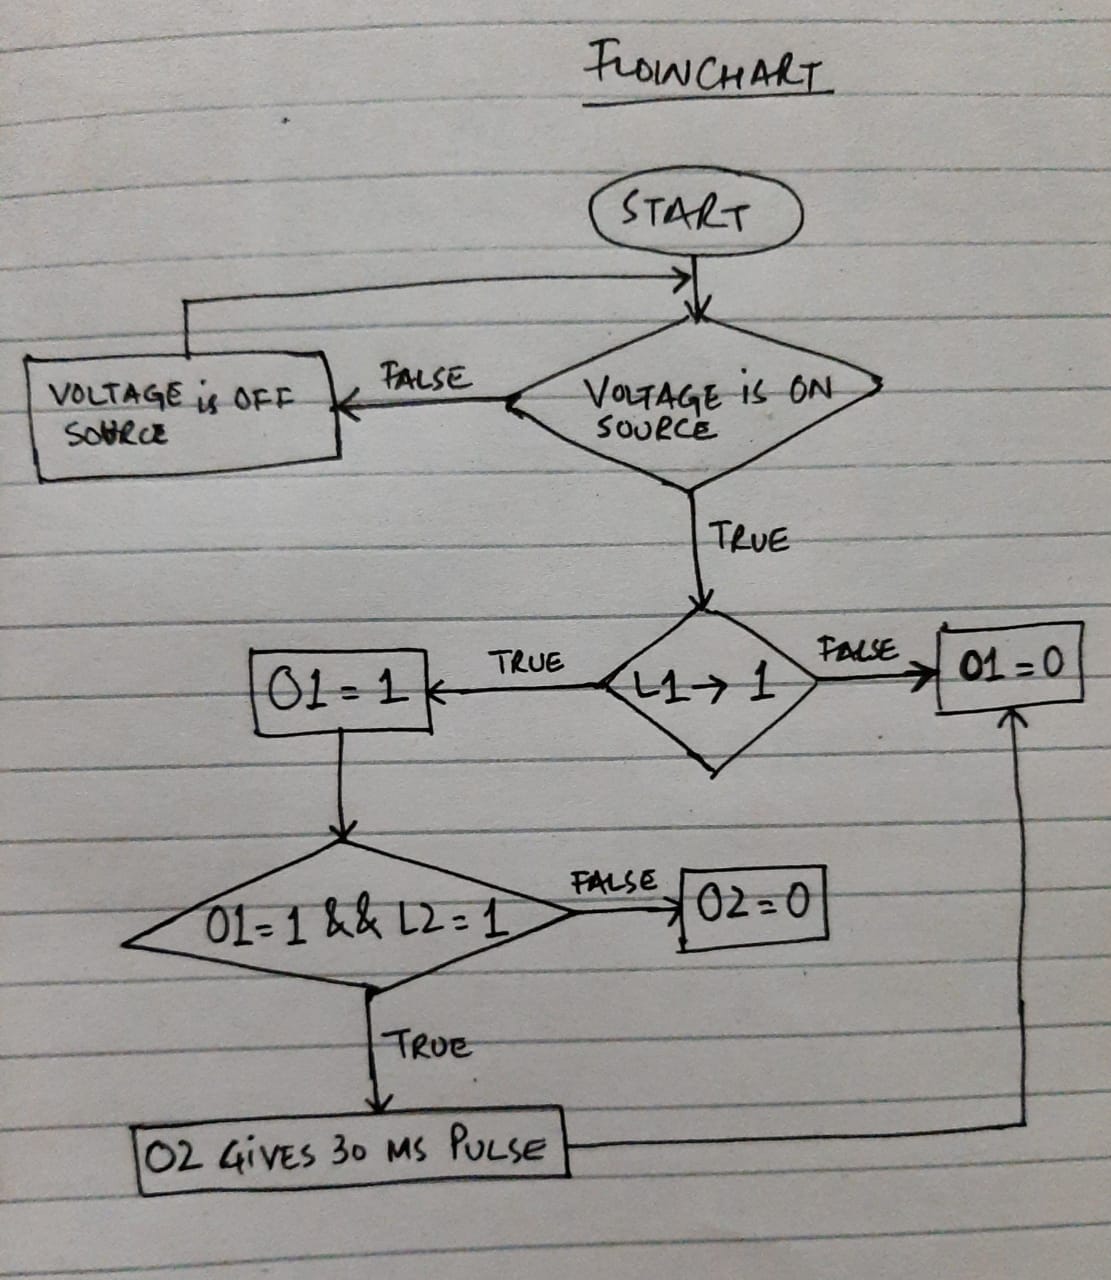 FLOWCHART
START
FALSE
VOLTAGE is OFF
SOURCE
VOLTAGE is ON
SOURCE
TRUE
O1 = 1
TRUE
L1 → 1
FALSE
O1 = 0
O1 = 1 && L2 = 1
FALSE
O2 = 0
TRUE
O2 GiVES 30 MS PULSE